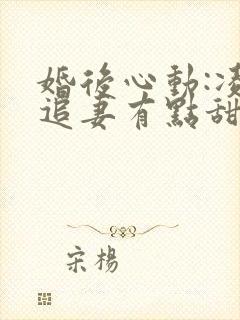 婚後心動:凌
追妻有點甜
宋楊